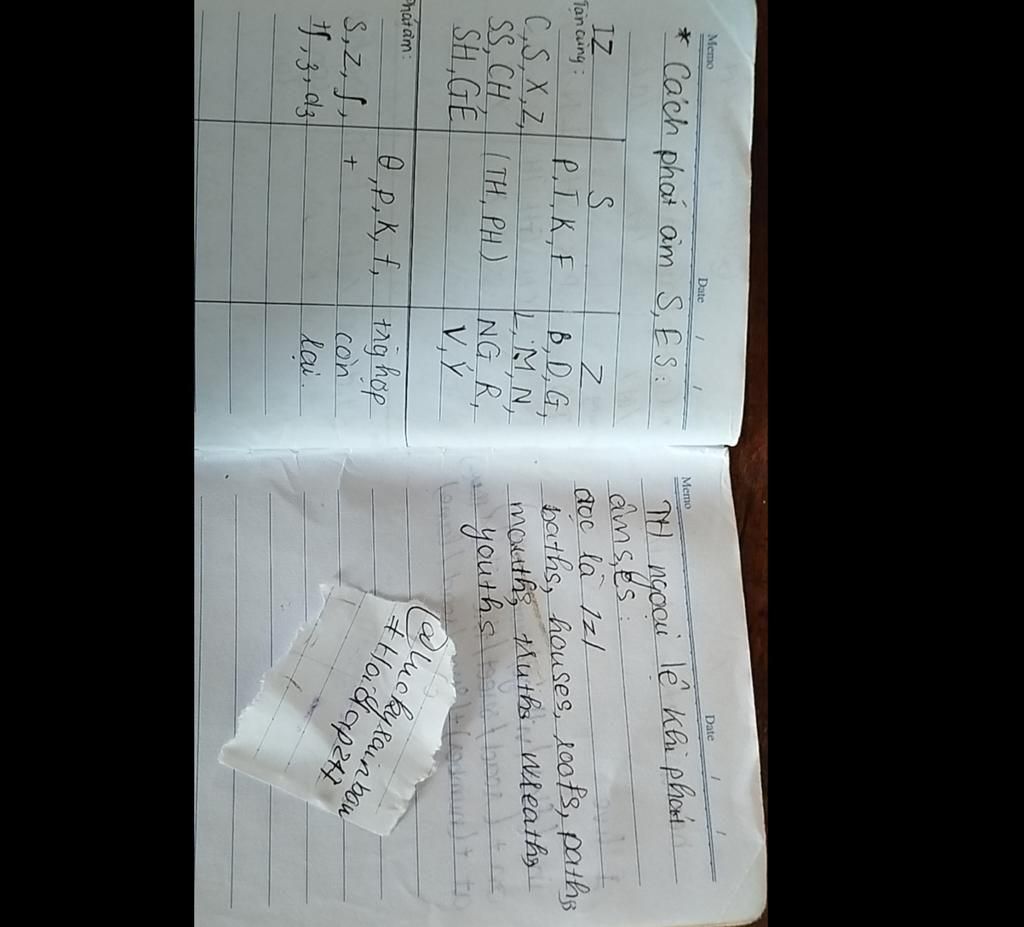 Memo
Date / /
* Cách phát âm S, ES:
IZ S Z
Tận cùng:
C, S, X, Z, P, T, K, F B, D, G,
SS, CH (TH, PH) L, M, N,
SH, GE NG R,
V, Y
Phát âm:
S, Z, ʃ, θ, p, k, f, trg hợp
tʃ, ʒ, dʒ t còn
lại.
Memo
Date / /
TH ngoại lệ khi phát
âm s, es:
đọc là /z/
baths, houses, roofs, paths
mouths, truths, wreaths
youths
@luckyrainbow